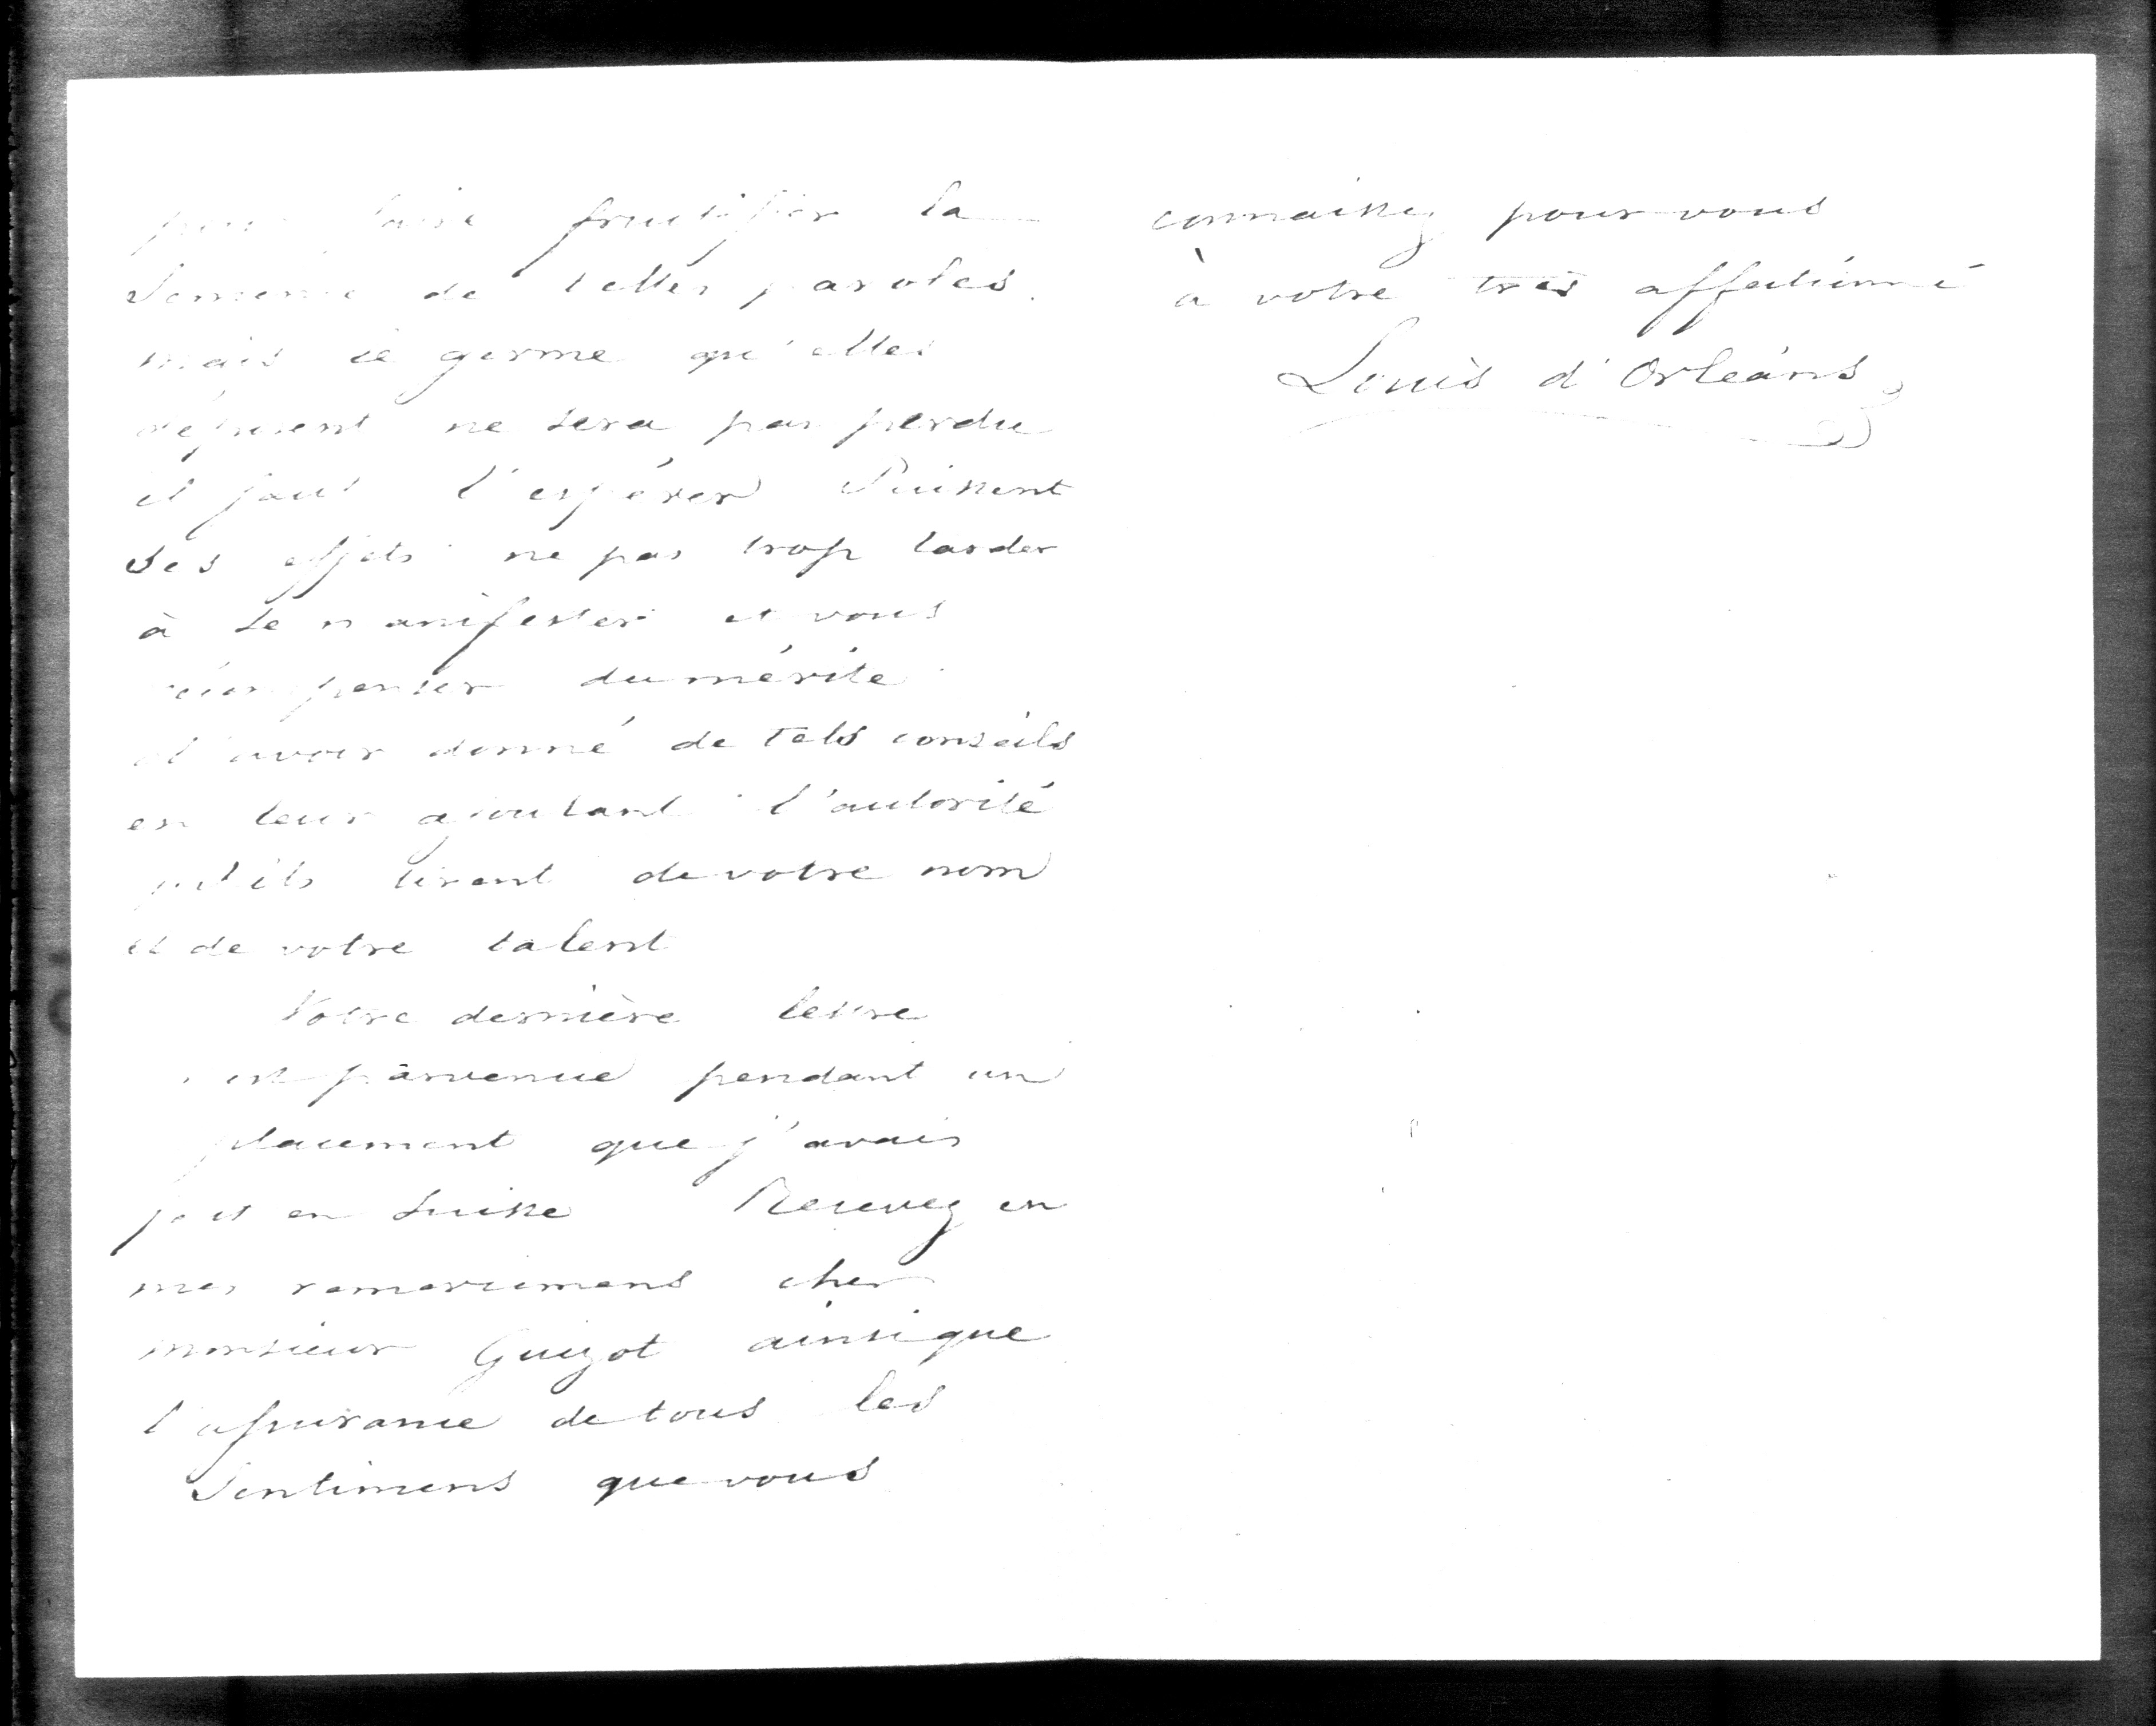 pour faire fructifier la
semence de telles paroles.
mais le germe qu'elles
déposent ne sera pas perdu
il faut l'espérer Puissent
ses effets ne pas trop tarder
à se manifester et vous
récompenser du mérite
d'avoir donné de tels conseils
en leur ajoutant l'autorité
qu'ils tirent de votre nom
et de votre talent
Votre dernière lettre
est parvenue pendant un
placement que j'avais
fait en Suisse Recevez en
mes remerciemens cher
monsieur Guizot ainsi que
l'assurance de tous les
Sentimens que vous
connaissez pour vous
à votre très affectionné
Louis d'Orléans